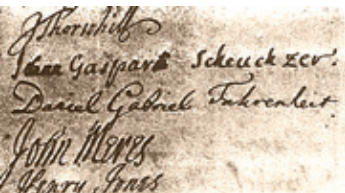 Johan Gaspar Scheuchzer.
Daniel Gabriel Fahrenheit.
John Meres
Henry Jones